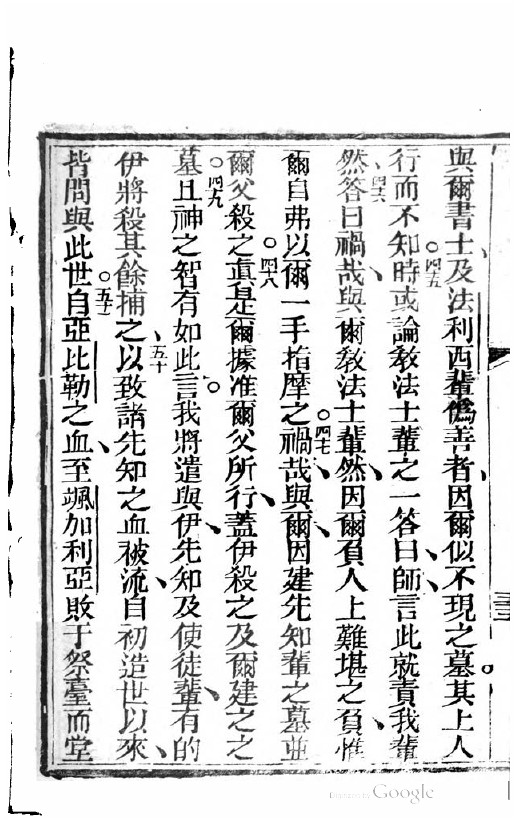 與爾書士及法利西輩偽善者、因爾似不現之墓。其上人
行而不知○四五時或論教法士輩之一答曰、師言此就責我輩
然、四六答曰禍哉、與爾教法士輩然、因爾負人上難堪之負、惟
爾自弗以爾一手指摩之○四七禍哉、與爾、因建先知輩之墓並
爾父殺之○四八真是爾據准爾父所行、蓋伊殺之、及爾建之之
墓○四九且神之智有如此言。我將遣與伊先知及使徒輩、有的
伊將殺、其餘捕之、五十以致諸先知之血被流、自初造世以來、
皆問與此世○五十一自亞比勒之血、至颯加利亞敗于祭臺而堂
Digitized by Google